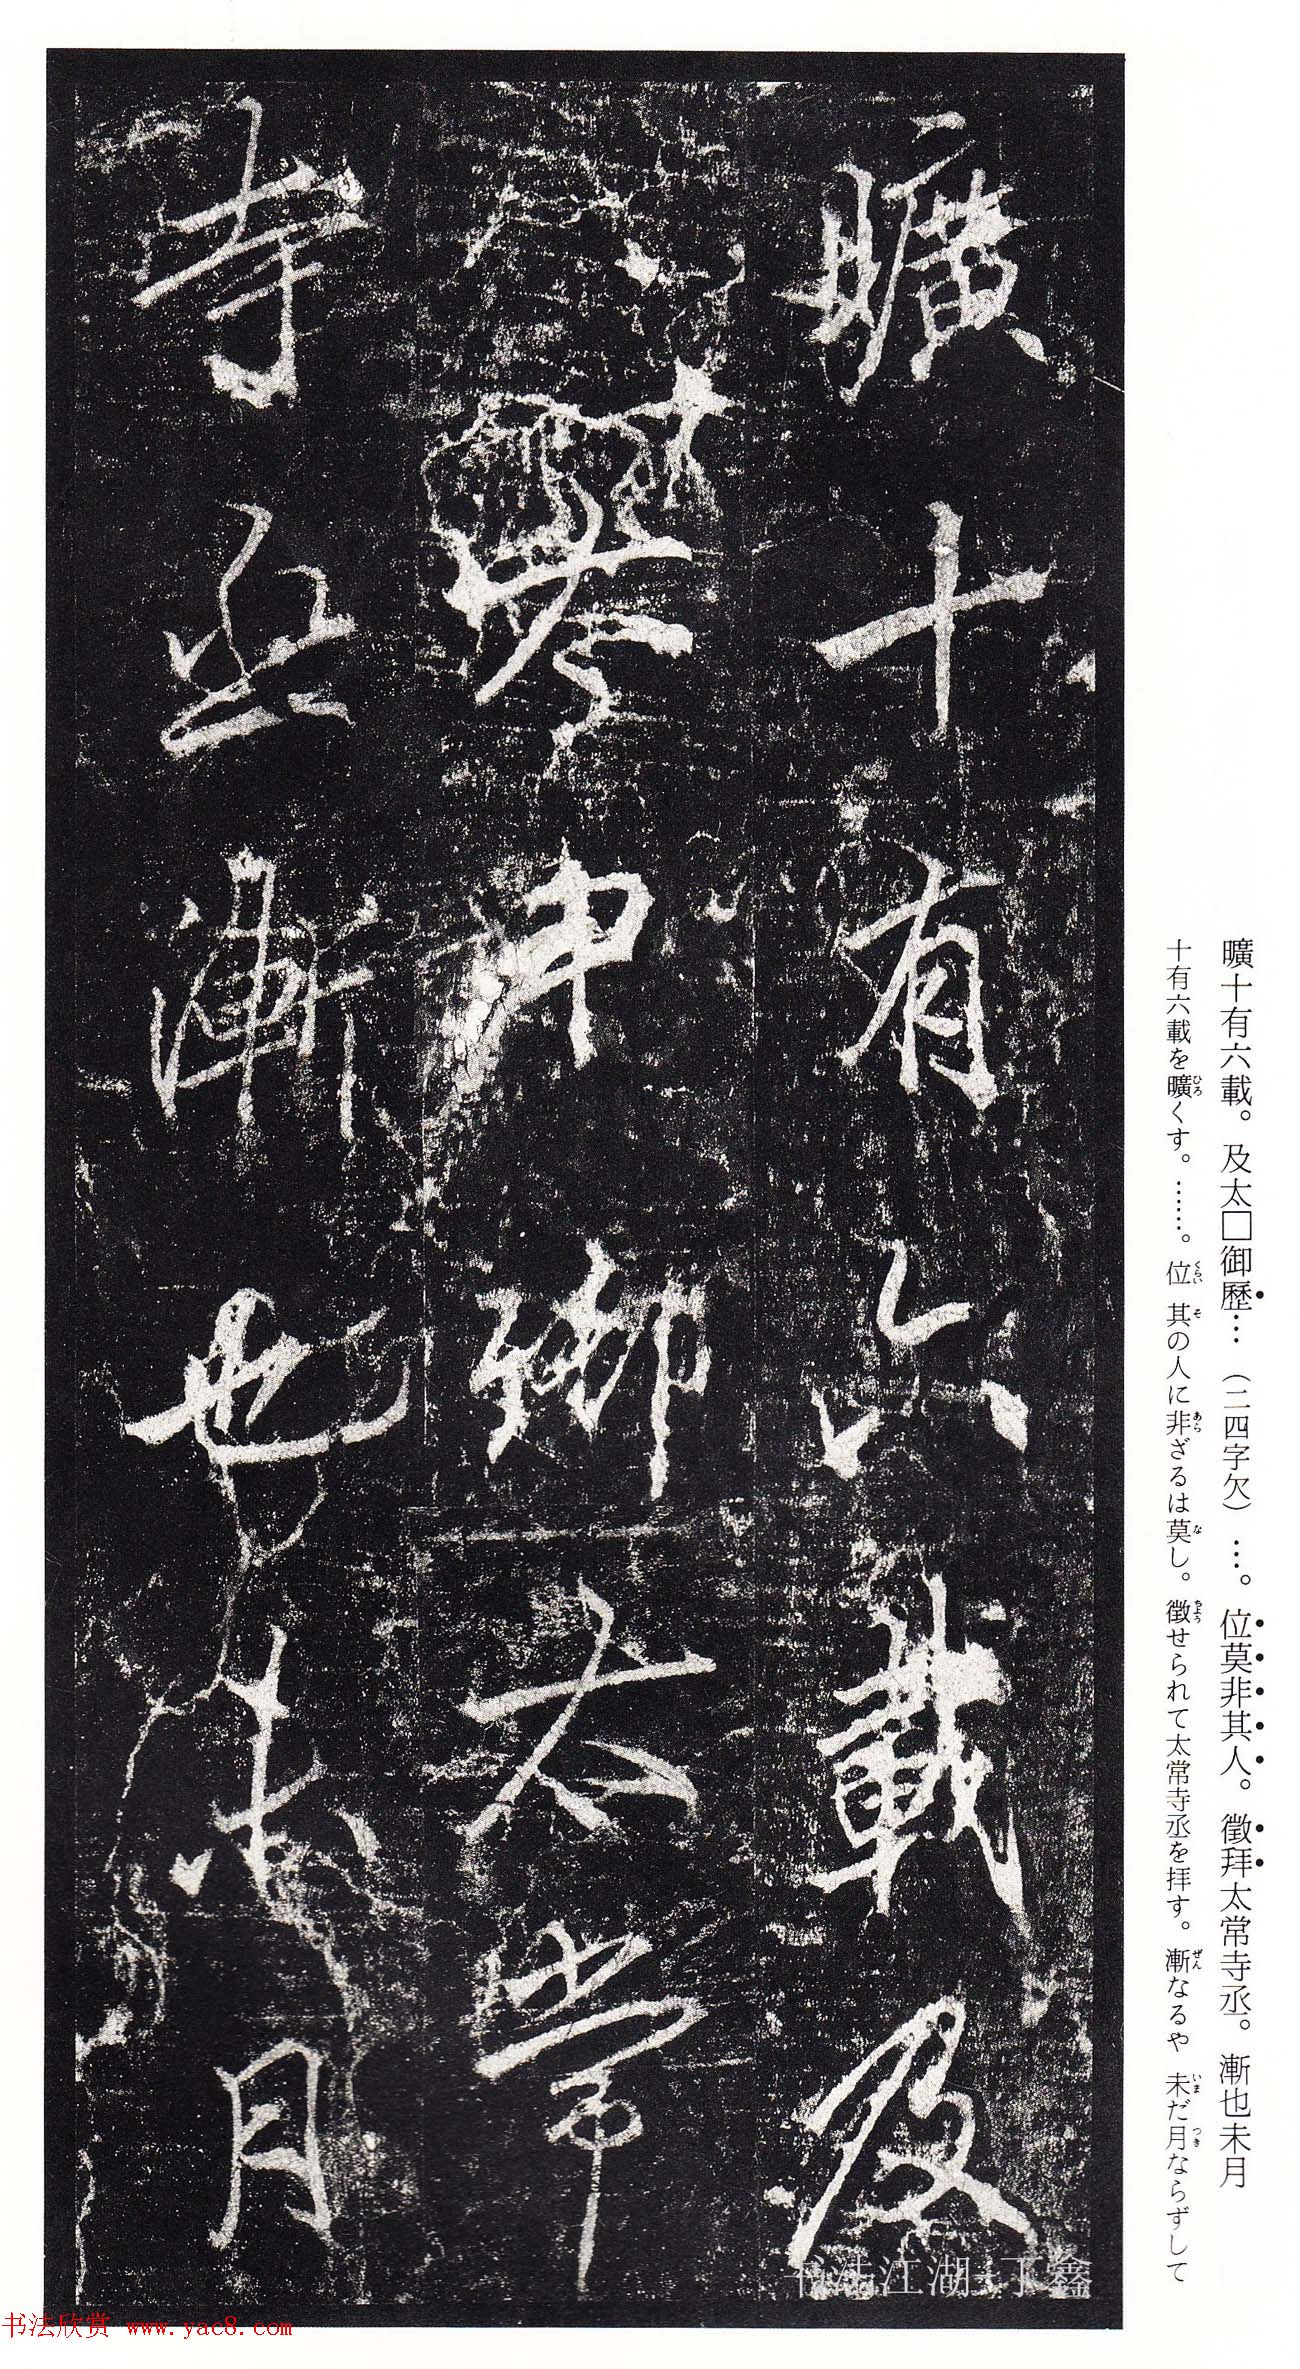 曠十有六載及
太
御太常
寺丞漸也未月
曠十有六載。及太□御歷…（二四字欠）…。位莫非其人。徵拜太常寺丞。漸也未月
十有六載を曠くす。……。位其の人に非ざるは莫し。徵せられて太常寺丞を拝す。漸なるや未だ月ならずして
书法江湖 丁鑫
书法欣赏 www.yac8.com